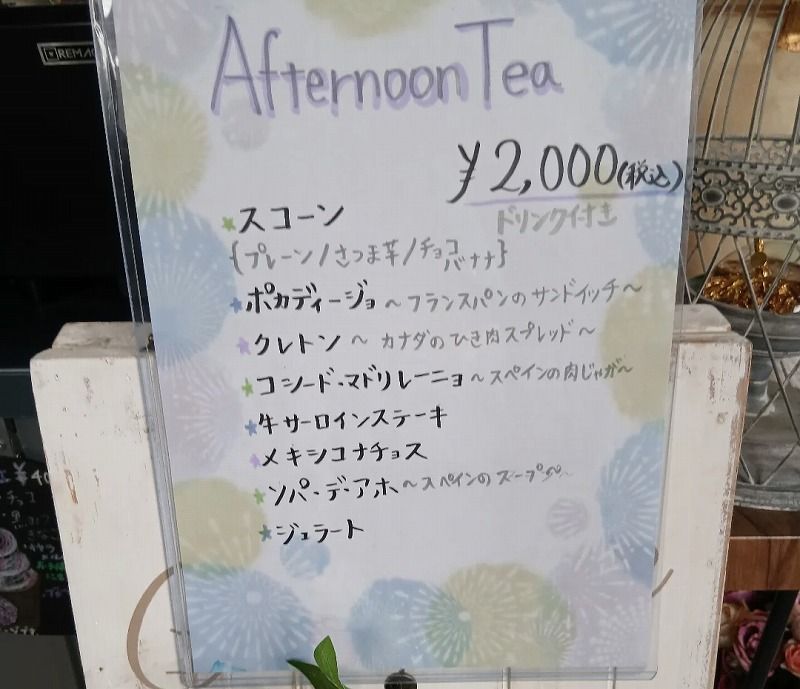 REMA
Afternoon Tea
¥2,000(税込)
ドリンク付き
スコーン
{プレーン/さつま芋/チョコバナナ}
ポカディージョ ～フランスパンのサンドイッチ～
クレトン ～カナダのひき肉スプレッド～
コシード・マドリレーニョ～スペインの肉じゃが～
牛サーロインステーキ
メキシコナチョス
ソパ・デ・アホ～スペインのスープ
ジェラート